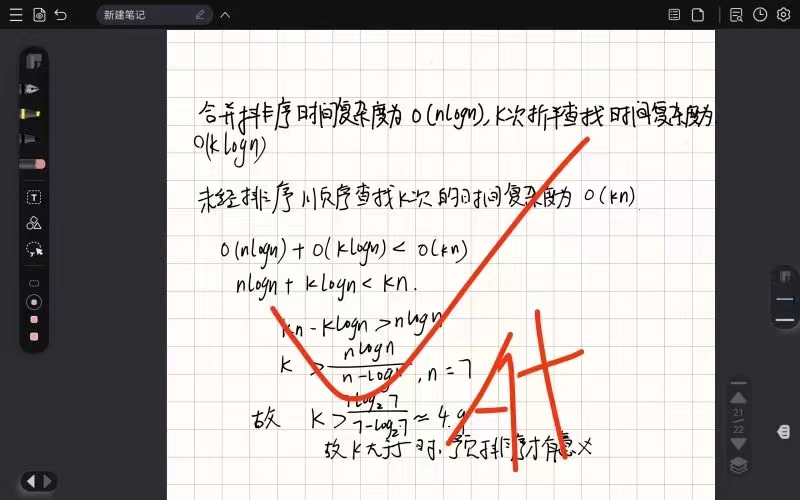 新建笔记
合并排序时间复杂度为 O(nlogn), K次折半查找时间复杂度为
O(klogn)
未经排序顺序查找K次的时间复杂度为 O(kn)
O(nlogn) + O(klogn) < O(kn)
nlogn + klogn < kn.
kn - klogn > nlogn
K > nlogn / n-logn , n = 7
故 K > 7log₂7 / 7-log₂7 ≈ 4.9
故K大于 时, 预排序才有意义
A+
T
21
22